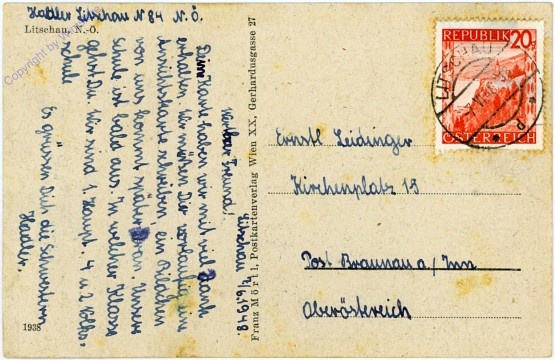 Hadler Litschau N 84 N.Ö.
Litschau, N.-Ö.
Litschau, 7/6.1948.
Werter Freund!
Deine Karte haben wir mit viel Dank
erhalten. Wir möchten Dir vorläufig ein
Ansichtskarte schreiben ein Bildchen
von uns kommt später daran. Unsere
Schule ist bald aus. In welcher Klasse
gehst Du. Wir sind 1. Haupt. 4 u 2 Volks-
schule
Es grüssen Dich die Schwestern
Hadler.
1938
Franz Mörtl, Postkartenverlag Wien XX, Gerhardusgasse 27
REPUBLIK 20
ÖSTERREICH
LITSCHAU
Ernstl Leidinger
Kirchenplatz 15
Post Braunau a/Inn
Oberöstereich